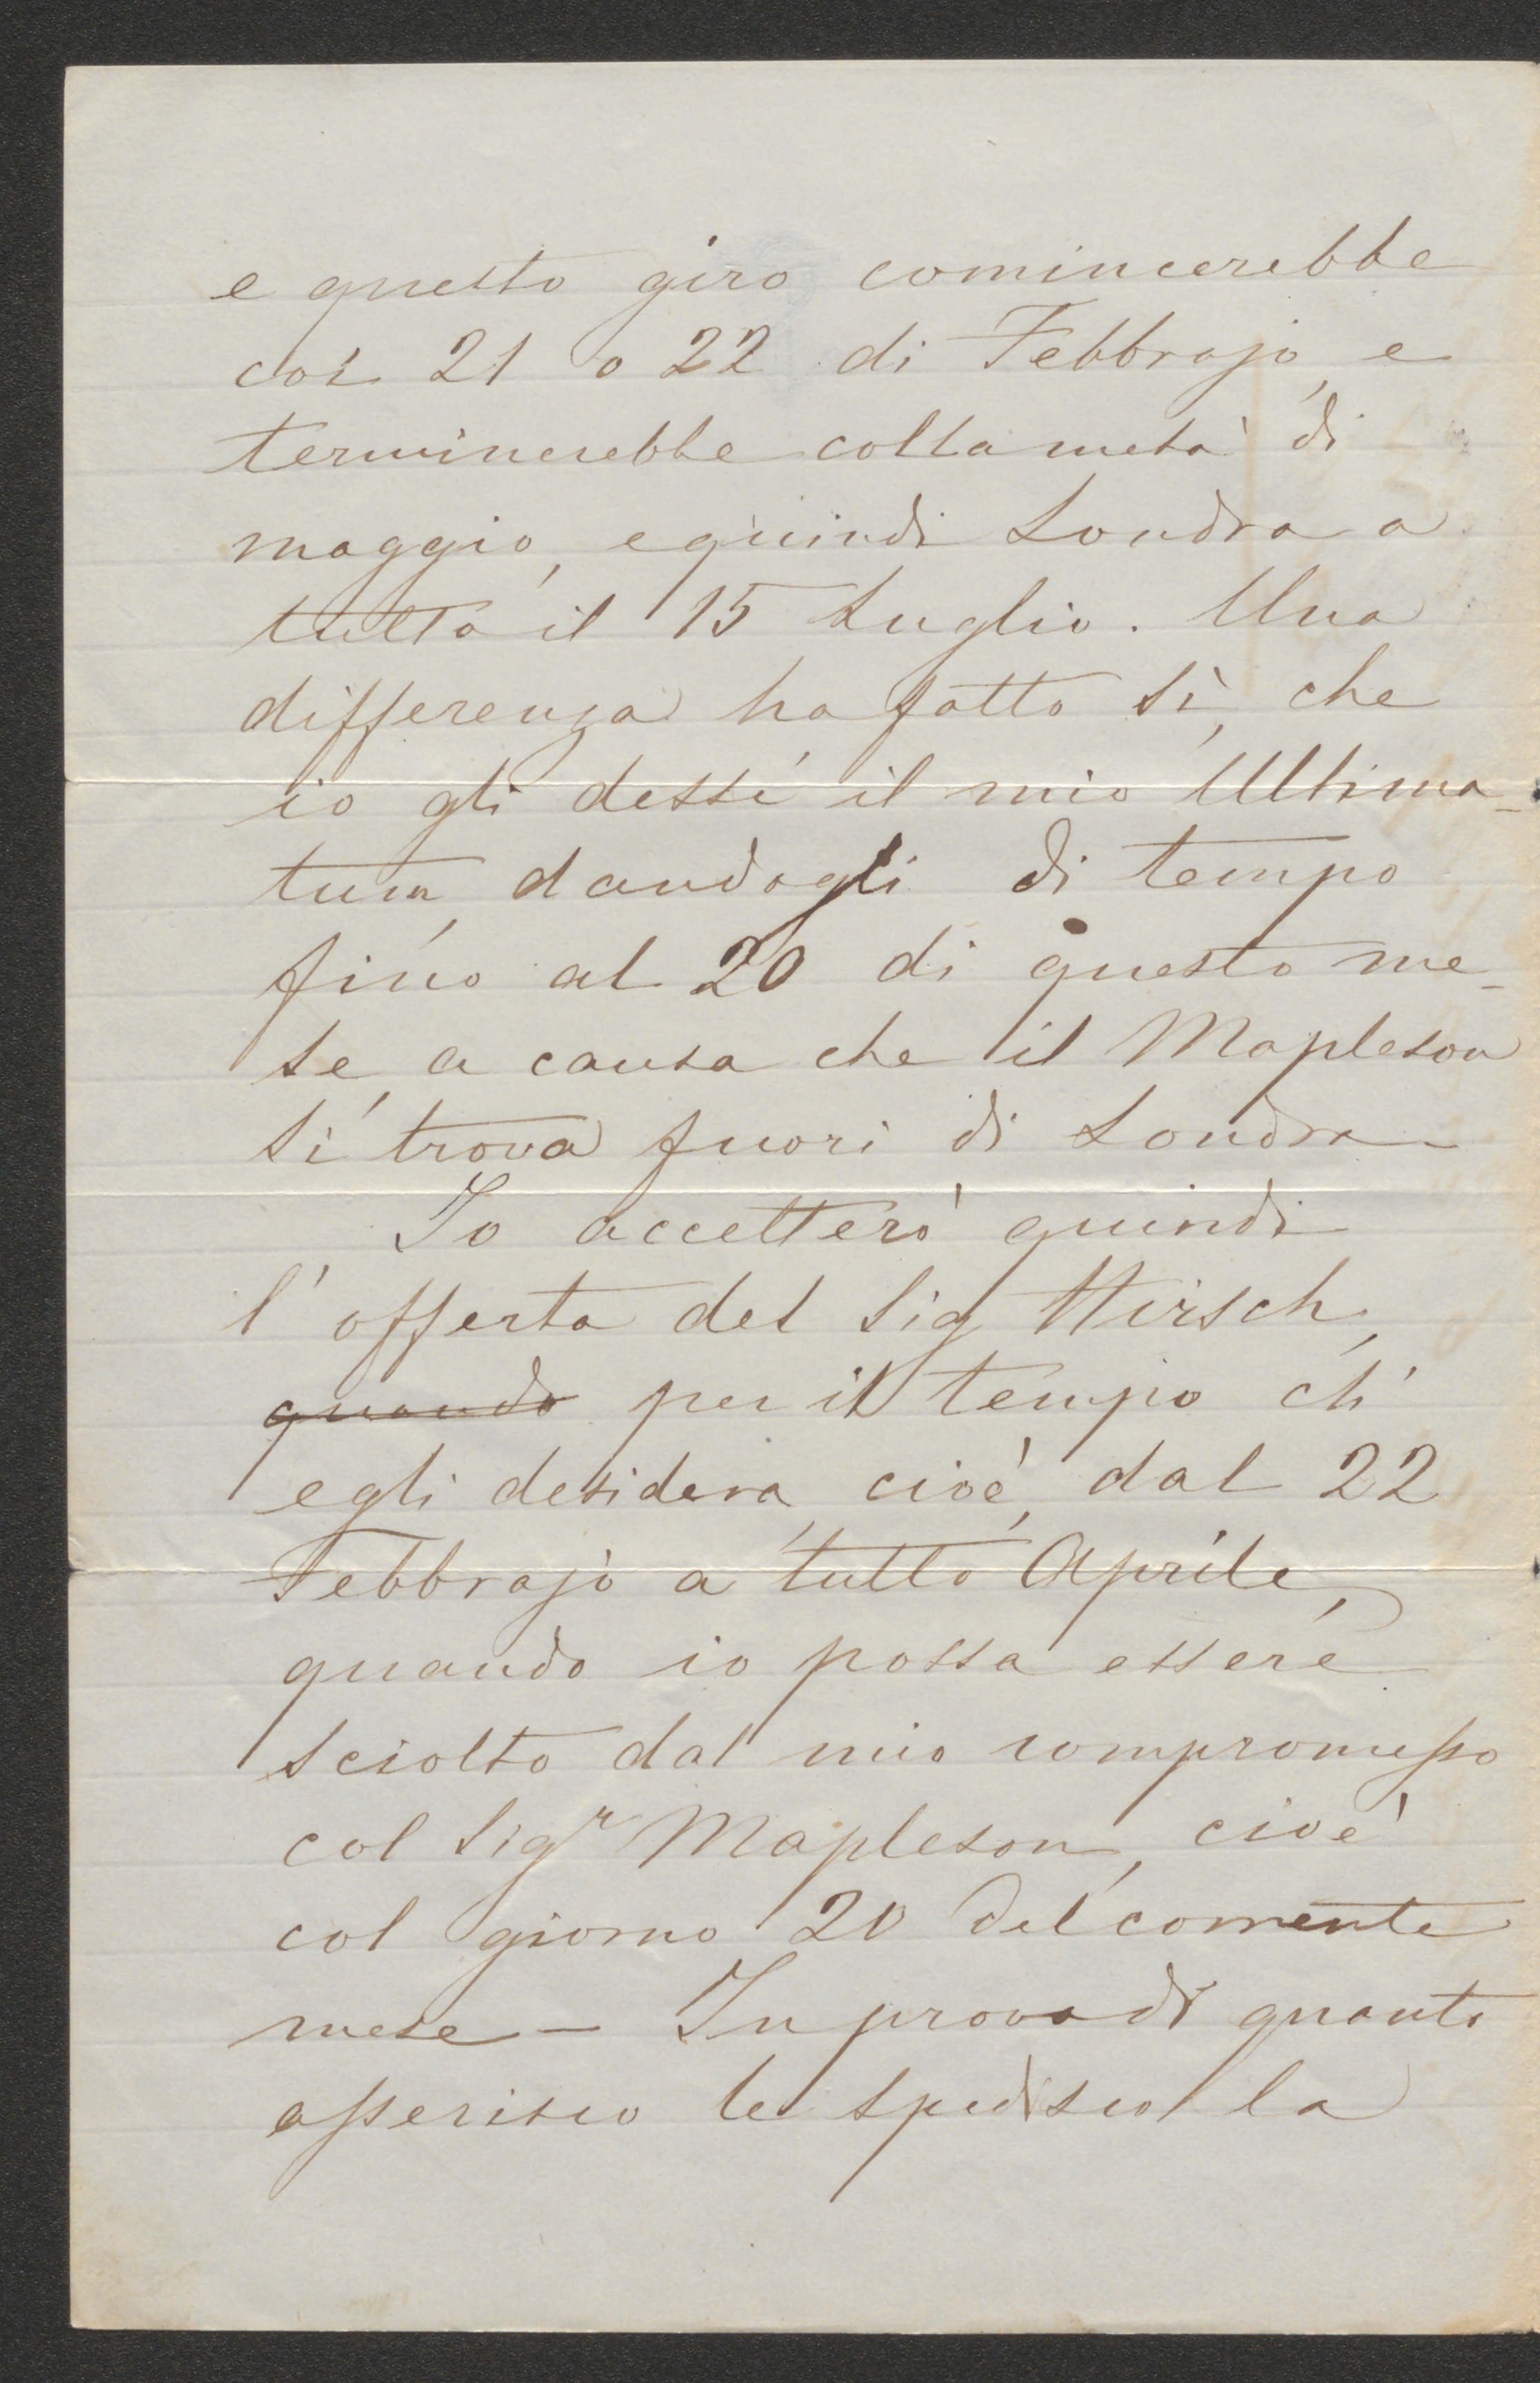 e questo giro comincerebbe
coi 21 o 22 di Febbrajo, e
terminerebbe colla metà di
maggio, e quindi Londra a
tutto il 15 Luglio. Una
differenza ha fatto sì, che
io gli dessi il mio Ultima-
tum, dandogli di tempo
fino al 20 di questo me-
se, a causa che il Mapleson
si trova fuori di Londra -
Io accetterò quindi
l'offerta del Sig Hirsch,
quando per il tempo ch'
egli desidera, cioè, dal 22
Febbrajo a tutto Aprile,
quando io possa essere
sciolto dal mio compromesso
col Sigr Mapleson, cioè
col giorno 20 del corrente
mese - In prova di quanto
asserisco le spedisco la